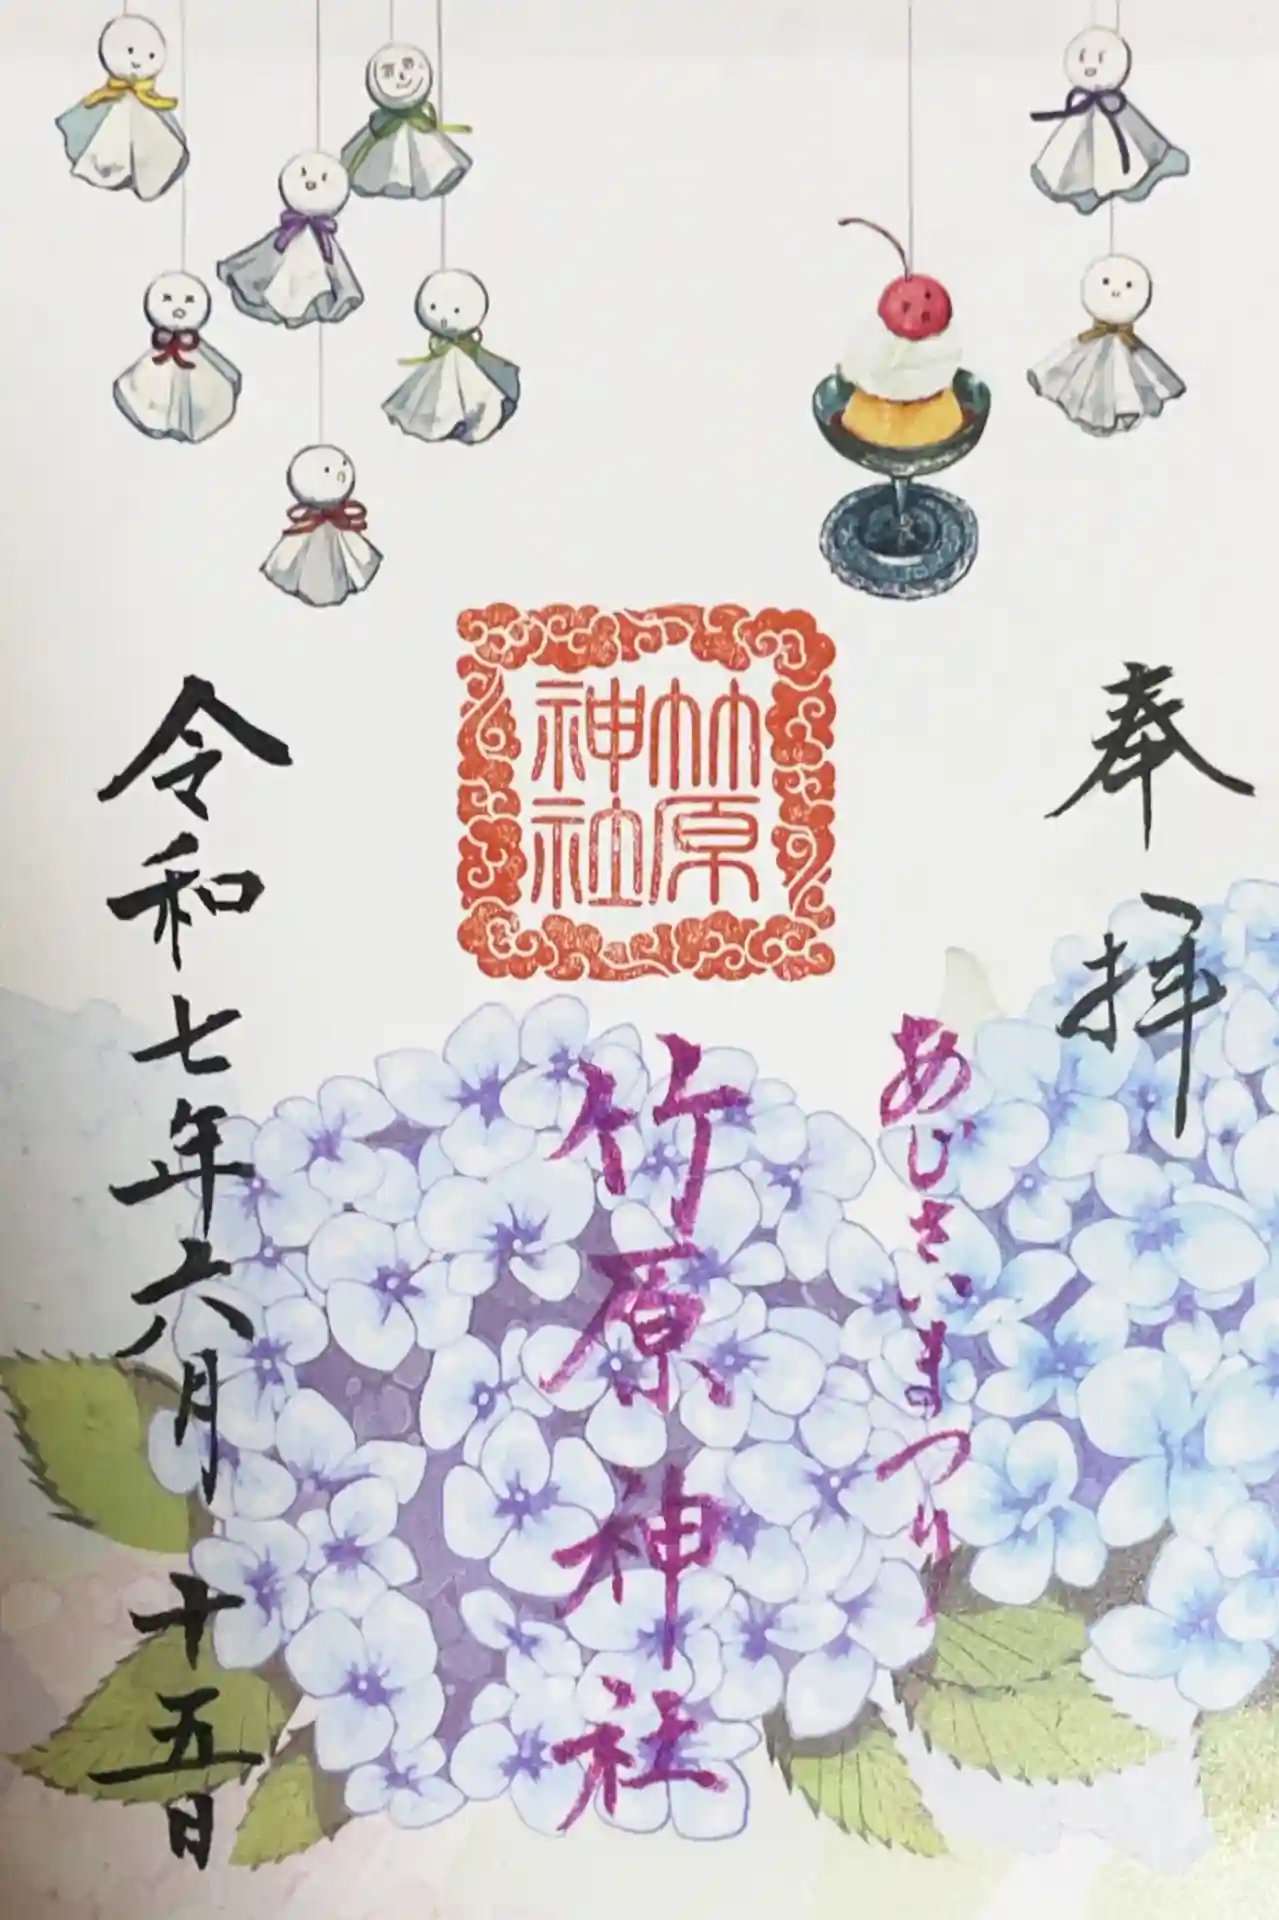 奉拝
あじさいまつり
竹原
神社
竹原神社
令和七年六月十五日